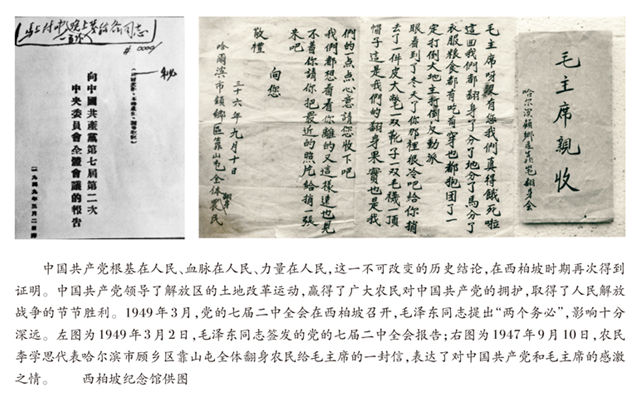 向中國共產黨第七屆第二次
中央委員會全體會議的報告
毛主席親收
哈尔濱顧鄉區靠山屯翻身会
毛主席呀沒有您我們真得餓死啦
這回我們都翻身了分了地分了馬分了
衣服粮食都有吃有穿也都抱团了一
定打倒大地主蒋倒反動派
眼看到了冬天了你那裡很冷吧給你捎
去了一件皮大氅一双靴子一双毛襪一頂
帽子這是我們的翻身果實也是我
們的一点点心意請您收下吧
我們都想看看你離的又這樣遠也見
不着你請你把最近的照片給捎一張
來吧
向您
敬禮
三十六年九月十日
哈爾濱市顧鄉區靠山屯全体農民
中国共产党根基在人民、血脉在人民、力量在人民，这一不可改变的历史结论，在西柏坡时期再次得到
证明。中国共产党领导了解放区的土地改革运动，赢得了广大农民对中国共产党的拥护，取得了人民解放
战争的节节胜利。1949年3月，党的七届二中全会在西柏坡召开，毛泽东同志提出“两个务必”，影响十分
深远。左图为1949年3月2日，毛泽东同志签发的党的七届二中全会报告；右图为1947年9月10日，农民
李学思代表哈尔滨市顾乡区靠山屯全体翻身农民给毛主席的一封信，表达了对中国共产党和毛主席的感激
之情。 西柏坡纪念馆供图